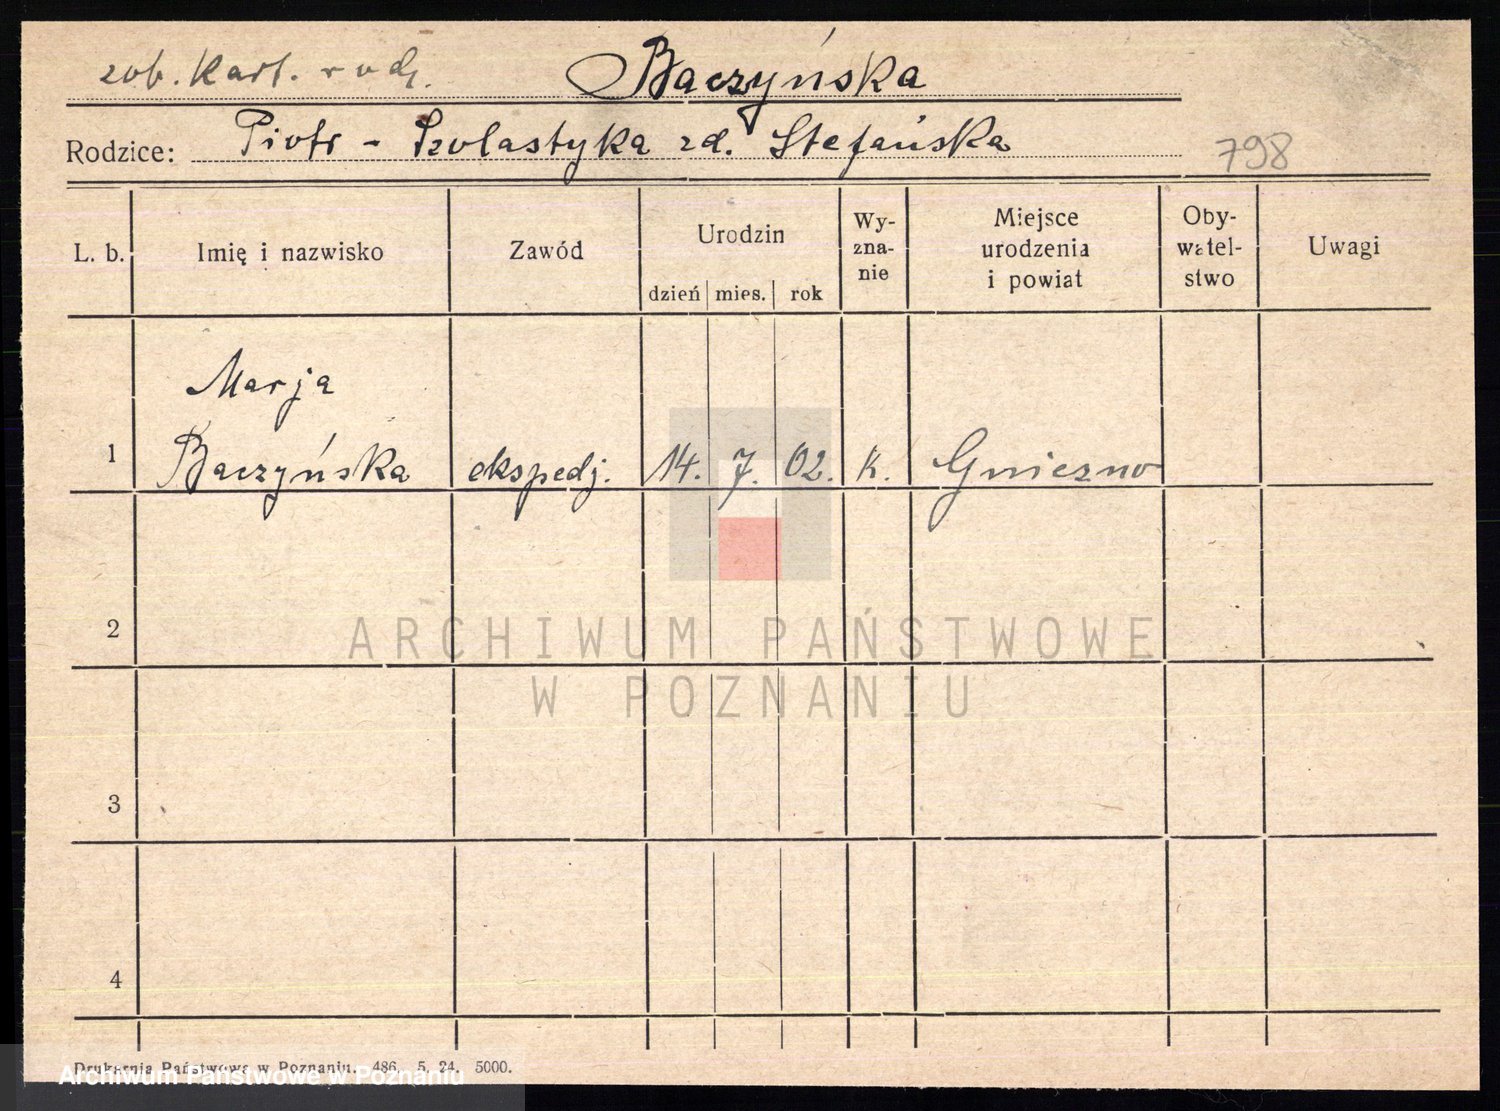 zob. Kart. rodz. Baczyńska
Rodzice: Piotr - Szolastyka zd. Stefańska
798
L. b. Imię i nazwisko Zawód Urodzin dzień mies. rok Wy-zna-nie Miejsce urodzenia i powiat Oby-watel-stwo Uwagi
Marja
1 Baczyńska ekspedj. 14. 7. 02. k. Gniezno
2
ARCHIWUM PAŃSTWOWE
W POZNANIU
3
4
Drukarnia Państwowa w Poznaniu. 486. 5. 24. 5000.
Archiwum Państwowe w Poznaniu